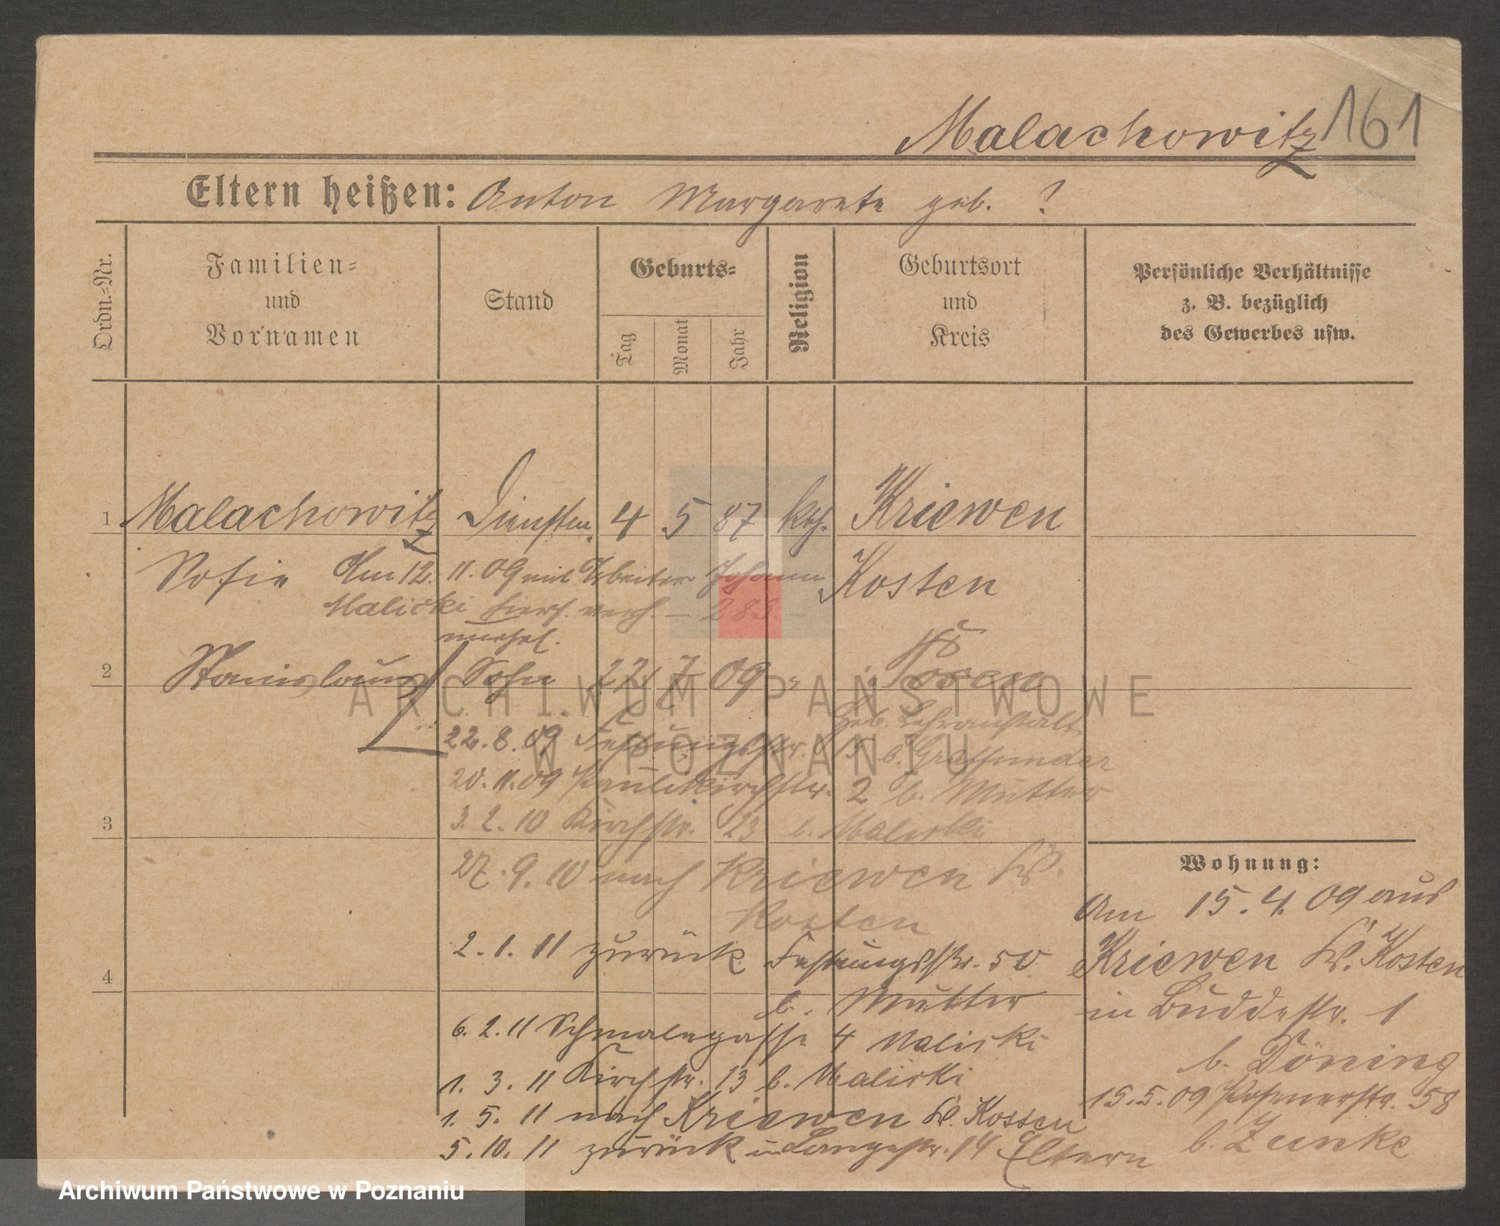 Malachowitz 161
Eltern heißen: Anton Margarete geb. ?
Ordn.=Nr.
Familien=
und
Vornamen
Stand
Geburts=
Tag
Monat
Jahr
Religion
Geburtsort
und
Kreis
Persönliche Verhältnisse
z. B. bezüglich
des Gewerbes usw.
1 Malachowitz 4 5 87 kth. Kriewen
Sofie Kosten
Am 12. 11. 09 mit Arbeiter Johann
Malicki verh. – 283.
unehel.
2 Stanislaus Sohn 22 7 09 " Posen
Geb. Lehranstalt
22. 8. 09 Festungsstr. b. Graffunder
20. 11. 09 Paulikirchstr. 2 b. Mutter
3. 2. 10 Kirchstr. 23 b. Malicki
3
27. 9. 10 nach Kriewen Kr.
Kosten
2. 1. 11 zurück Festungsstr. 50
b. Mutter
4
6. 2. 11 Schmalegasse 4 Maliski
1. 3. 11 Kirchstr. 13 b. Maliski
1. 5. 11 nach Kriewen Kr. Kosten
5. 10. 11 zurück in Langestr. 14 Eltern
Wohnung:
Am 15. 4. 09 aus
Kriewen Kr. Kosten
in Buddestr. 1
b. Döning
15. 5. 09 Posenerstr. 58
b. Zunke
ARCHIWUM PAŃSTWOWE
W POZNANIU
Archiwum Państwowe w Poznaniu